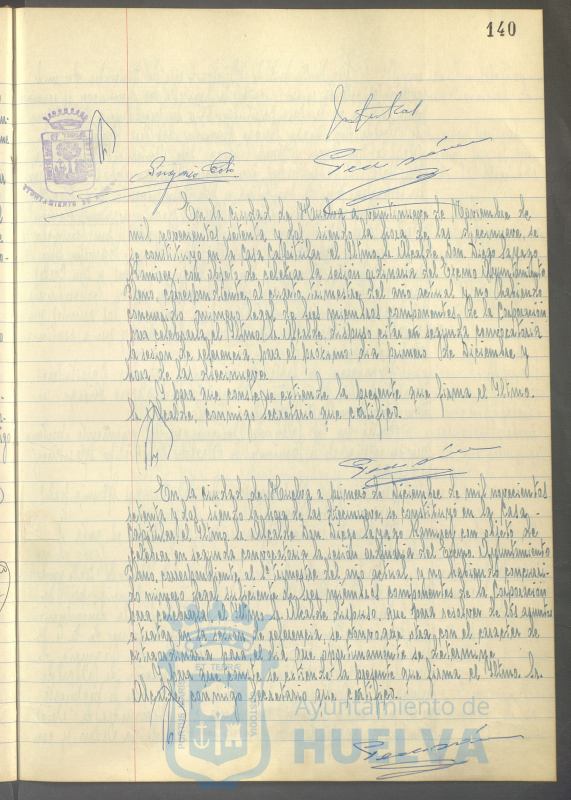 140
En la ciudad de Huelva a veintinueve de Noviembre de
mil novecientos setenta y dos siendo la hora de las diecinueve, se
constituyó en la Casa Capitular el Iltmo. Sr. Alcalde, Don Diego Sayago
Ramírez con objeto de celebrar la sesión ordinaria del Excmo. Ayuntamiento
Pleno, correspondiente al cuarto trimestre del año actual y no habiendo
concurrido número legal de Sres. miembros componentes de la Corporación
para celebrarla, el Iltmo. Sr. Alcalde dispuso citar en segunda convocatoria
la sesión de referencia, para el próximo día primero de Diciembre y
hora de las diecinueve.
Y para que conste se extiende la presente que firma el Iltmo.
Sr. Alcalde, conmigo Secretario que certifico.
En la ciudad de Huelva a primero de Diciembre de mil novecientos
setenta y dos, siendo la hora de las diecinueve, se constituyó en la Casa
Capitular el Iltmo. Sr. Alcalde Don Diego Sayago Ramírez con objeto de
celebrar en segunda convocatoria la sesión ordinaria del Excmo. Ayuntamiento
Pleno, correspondiente al trimestre del año actual, y no habiendo concurri-
do número legal suficiente de Sres. miembros componentes de la Corporación
para celebrarla, el Iltmo. Sr. Alcalde dispuso, que para resolver de los asuntos
a tratar en la sesión de referencia se convoque otra, con el carácter de
extraordinaria para el día que oportunamente se determine.
Y para que conste se extiende la presente que firma el Iltmo. Sr.
Alcalde, conmigo Secretario que certifico.
Ayuntamiento de
HUELVA